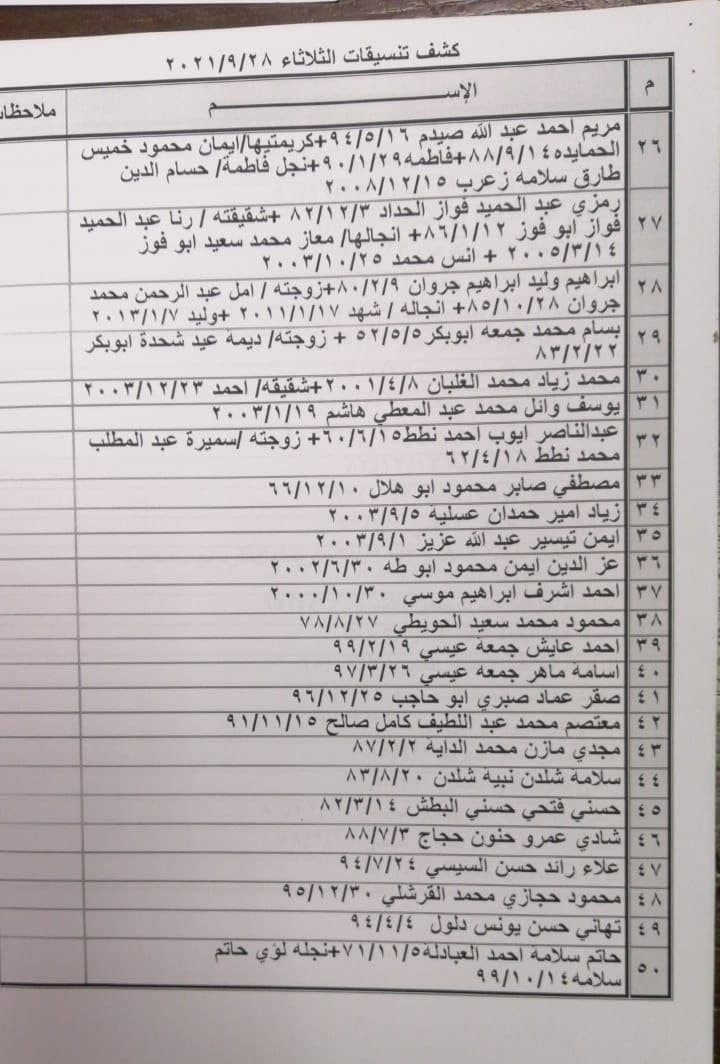 كشف تنسيقات الثلاثاء ٢٠٢١/٩/٢٨
م
الإســـــــــــــم
ملاحظات
٢٦
مريم احمد عبد الله صيدم ٩٤/٥/١٦+كريمتيها/ايمان محمود خميس
الحمايده٨٨/٩/١٤+فاطمه٩٠/١/٢٩+نجل فاطمة/ حسام الدين
طارق سلامه زعرب ٢٠٠٨/١٢/١٥
٢٧
رمزي عبد الحميد فواز الحداد ٨٢/١٢/٣ +شقيقته / رنا عبد الحميد
فواز ابو فوز ٨٦/١/١٢+ انجالها/ معاز محمد سعيد ابو فوز
٢٠٠٥/٣/١٤ + انس محمد ٢٠٠٣/١٠/٢٥
٢٨
ابراهيم وليد ابراهيم جروان ٨٠/٢/٩+زوجته / امل عبد الرحمن محمد
جروان ٨٥/١٠/٢٨+ انجاله / شهد ٢٠١١/١/١٧ +وليد ٢٠١٣/١/٧
٢٩
بسام محمد جمعه ابوبكر ٥٢/٥/٥ + زوجته/ ديمة عيد شحدة ابوبكر
٨٣/٢/٢٢
٣٠
محمد زياد محمد الغلبان ٢٠٠١/٤/٨+شقيقه/ احمد ٢٠٠٣/١٢/٢٣
٣١
يوسف وائل محمد عبد المعطي هاشم ٢٠٠٣/١/١٩
٣٢
عبدالناصر ايوب احمد نطط٦٠/٦/١٥+ زوجته /سميرة عبد المطلب
محمد نطط ٦٢/٤/١٨
٣٣
مصطفي صابر محمود ابو هلال ٦٦/١٢/١٠
٣٤
زياد امير حمدان عسلية ٢٠٠٣/٩/٥
٣٥
ايمن تيسير عبد الله عزيز ٢٠٠٣/٩/١
٣٦
عز الدين ايمن محمود ابو طه ٢٠٠٢/٦/٣٠
٣٧
احمد اشرف ابراهيم موسي ٢٠٠٠/١٠/٣٠
٣٨
محمود محمد سعيد الحويطي ٧٨/٨/٢٧
٣٩
احمد عايش جمعة عيسي ٩٩/٢/١٩
٤٠
اسامة ماهر جمعه عيسي ٩٧/٣/٢٦
٤١
صقر عماد صبري ابو حاجب ٩٦/١٢/٢٥
٤٢
معتصم محمد عبد اللطيف كامل صالح ٩١/١١/١٥
٤٣
مجدي مازن محمد الداية ٨٧/٢/٢
٤٤
سلامه شلدن نبية شلدن ٨٣/٨/٢٠
٤٥
حسني فتحي حسني البطش ٨٢/٣/١٤
٤٦
شادي عمرو حنون حجاج ٨٨/٧/٣
٤٧
علاء رائد حسن السيسي ٩٤/٧/٢٤
٤٨
محمود حجازي محمد القرشلي ٩٥/١٢/٣٠
٤٩
تهاني حسن يونس دلول ٩٤/٤/٤
٥٠
حاتم سلامة احمد العبادله٧١/١١/٥+نجله لؤي حاتم
سلامه٩٩/١٠/١٤